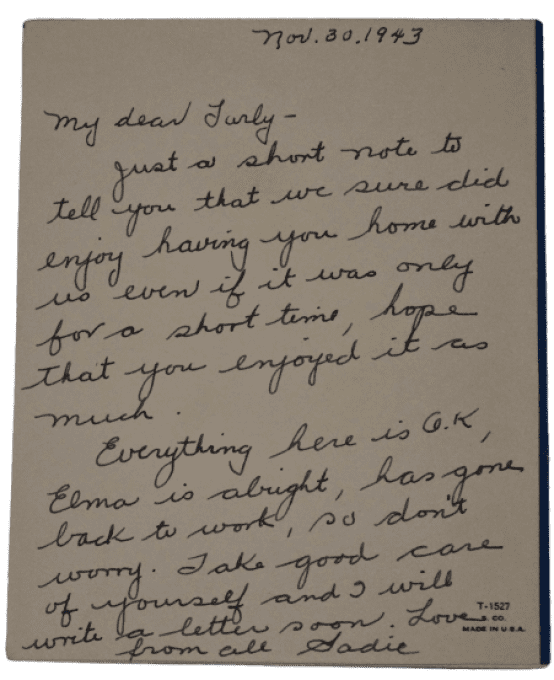 Nov. 30, 1943
My dear Turly -
Just a short note to
tell you that we sure did
enjoy having you home with
us even if it was only
for a short time, hope
that you enjoyed it as
much.
Everything here is O.K,
Elma is alright, has gone
back to work, so don't
worry. Take good care
of yourself and I will
write a letter soon. Love
from all Sadie
T-1527
CO.
MADE IN U.S.A.